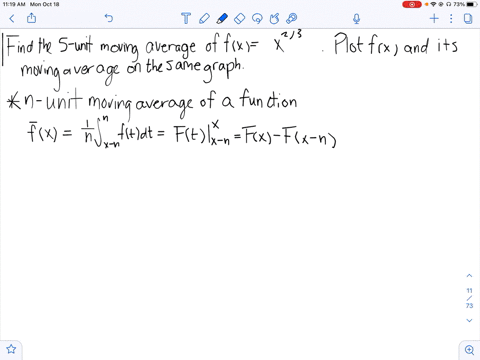 11:19 AM Mon Oct 18
73%
Find the 5-unit moving average of f(x) = x^{2/3} . Plot f(x) and its
moving average on the same graph.
*n-unit moving average of a function
f̄(x) = 1/n ∫_{x-n}^{n} f(t)dt = F(t)|_{x-n}^{x} = F(x) - F(x-n)
11
/
73